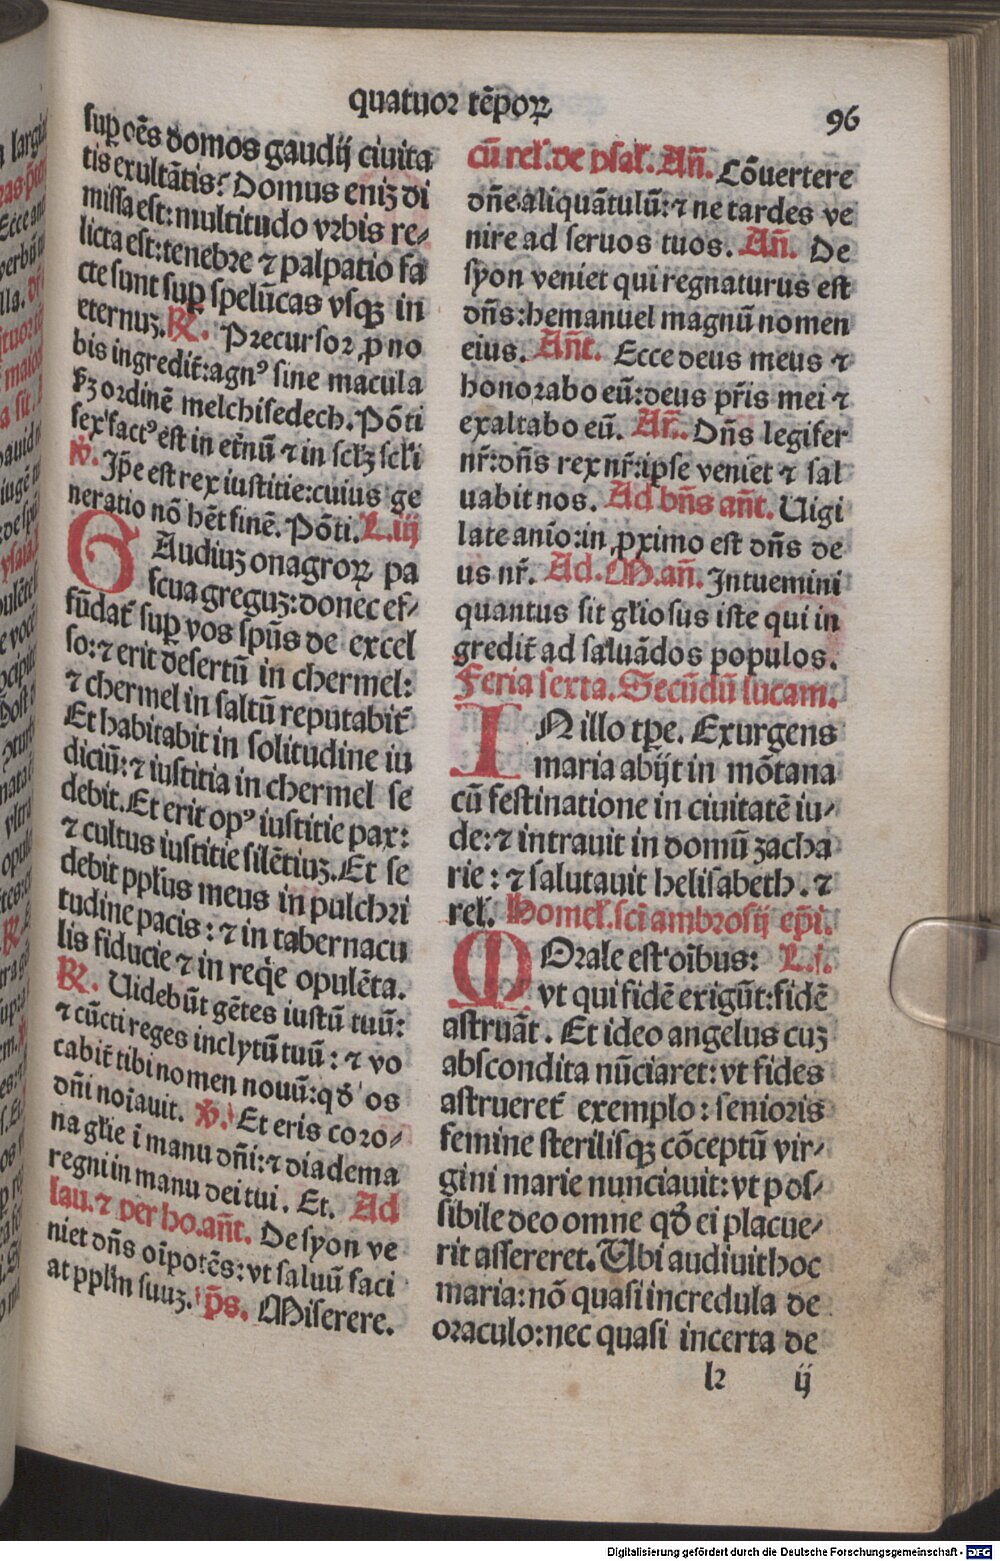 quatuoꝛ tēpoꝝ
96
ſuꝑ oēs domos gaudij ciuita
tis exultātis? Domus eniꝫ di
miſſa est: multitudo vꝛbis re⸗
licta est: tenebꝛe ⁊ palpatio fa
cte ſunt ſuꝑ ſpelūcas vſqꝫ in
eternuꝫ. ℟. Pꝛecurſoꝛ ꝓ no
bis ingredit̄: agnꝰ ſine macula
ẜꝫ oꝛdinē melchiſedech. Pōti
fex factꝰ est in et̄nū ⁊ in ſcl̄ꝫ ſcl̄i
℣. Ip̄e est rex iustitie: cuius ge
neratio nō hēt finē. Pōti. L. iij
GAudiuꝫ onagroꝝ pa
ſcua greguꝫ: donec ef⸗
fūdat̄ ſuꝑ vos ſpūs de excel
ſo: ⁊ erit deſertū in chermel:
⁊ chermel in ſaltū reputabit̄
Et habitabit in ſolitudine iu
diciū: ⁊ iustitia in chermel ſe
debit. Et erit opꝰ iustitie pax:
⁊ cultus iustitie ſilētiuꝫ. Et ſe
debit ppl̄us meus in pulchꝛi
tudine pacis: ⁊ in tabernacu
lis fiducie ⁊ in req̇e opulēta.
℟. Uidebūt gētes iustū tuū:
⁊ cūcti reges inclytū tuū: ⁊ vo
cabit̄ tibi nomen nouū: qđ os
dn̄i noīauit. ℣. Et eris coꝛo⸗
na gl̄ie ī manu dn̄i: ⁊ diadema
regni in manu dei tui. Et. Ad
lau. ⁊ per ho. an̄t. De ſyon ve
niet dn̄s oīpotēs: vt ſaluū faci
at ppl̄m ſuuꝫ. p̄s. Miſerere.
cū rel̄. de pſal̄. An̄. Cōuertere
dn̄e aliquātulū: ⁊ ne tardes ve
nire ad ſeruos tuos. An̄. De
ſyon veniet qui regnaturus est
dn̄s: hemanuel magnū nomen
eius. An̄t. Ecce deus meus ⁊
honoꝛabo eū: deus pr̄is mei ⁊
exaltabo eū. An̄. Dn̄s legifer
nr̄: dn̄s rex nr̄: ipſe veniet ⁊ ſal
uabit nos. Ad bn̄s an̄t. Uigi
late anīo: in ꝓximo est dn̄s de
us nr̄. Ad. M. an̄. Intuemini
quantus ſit gl̄ioſus iste qui in
gredit̄ ad ſaluādos populos.
Feria ſexta. Secūdū lucam.
IN illo tꝑe. Exurgens
maria abijt in mōtana
cū festinatione in ciuitatē iu⸗
de: ⁊ intrauit in domū zacha
rie: ⁊ ſalutauit heliſabeth. ⁊
rel̄. Homel̄. ſci ambroſij ep̄i.
MOꝛale est oībus: L. i.
vt qui fidē exigūt: fidē
astruāt. Et ideo angelus cuꝫ
abſcondita nūciaret: vt fides
astrueret̄ exemplo: ſenioꝛis
femine sterilisqꝫ cōceptū vir⸗
gini marie nunciauit: vt poſ⸗
ſibile deo omne qđ ei placue⸗
rit aſſereret. Ubi audiuit hoc
maria: nō quaſi incredula de
oꝛaculo: nec quaſi incerta de
k ij
Digitalisierung gefördert durch die Deutsche Forschungsgemeinschaft - DFG